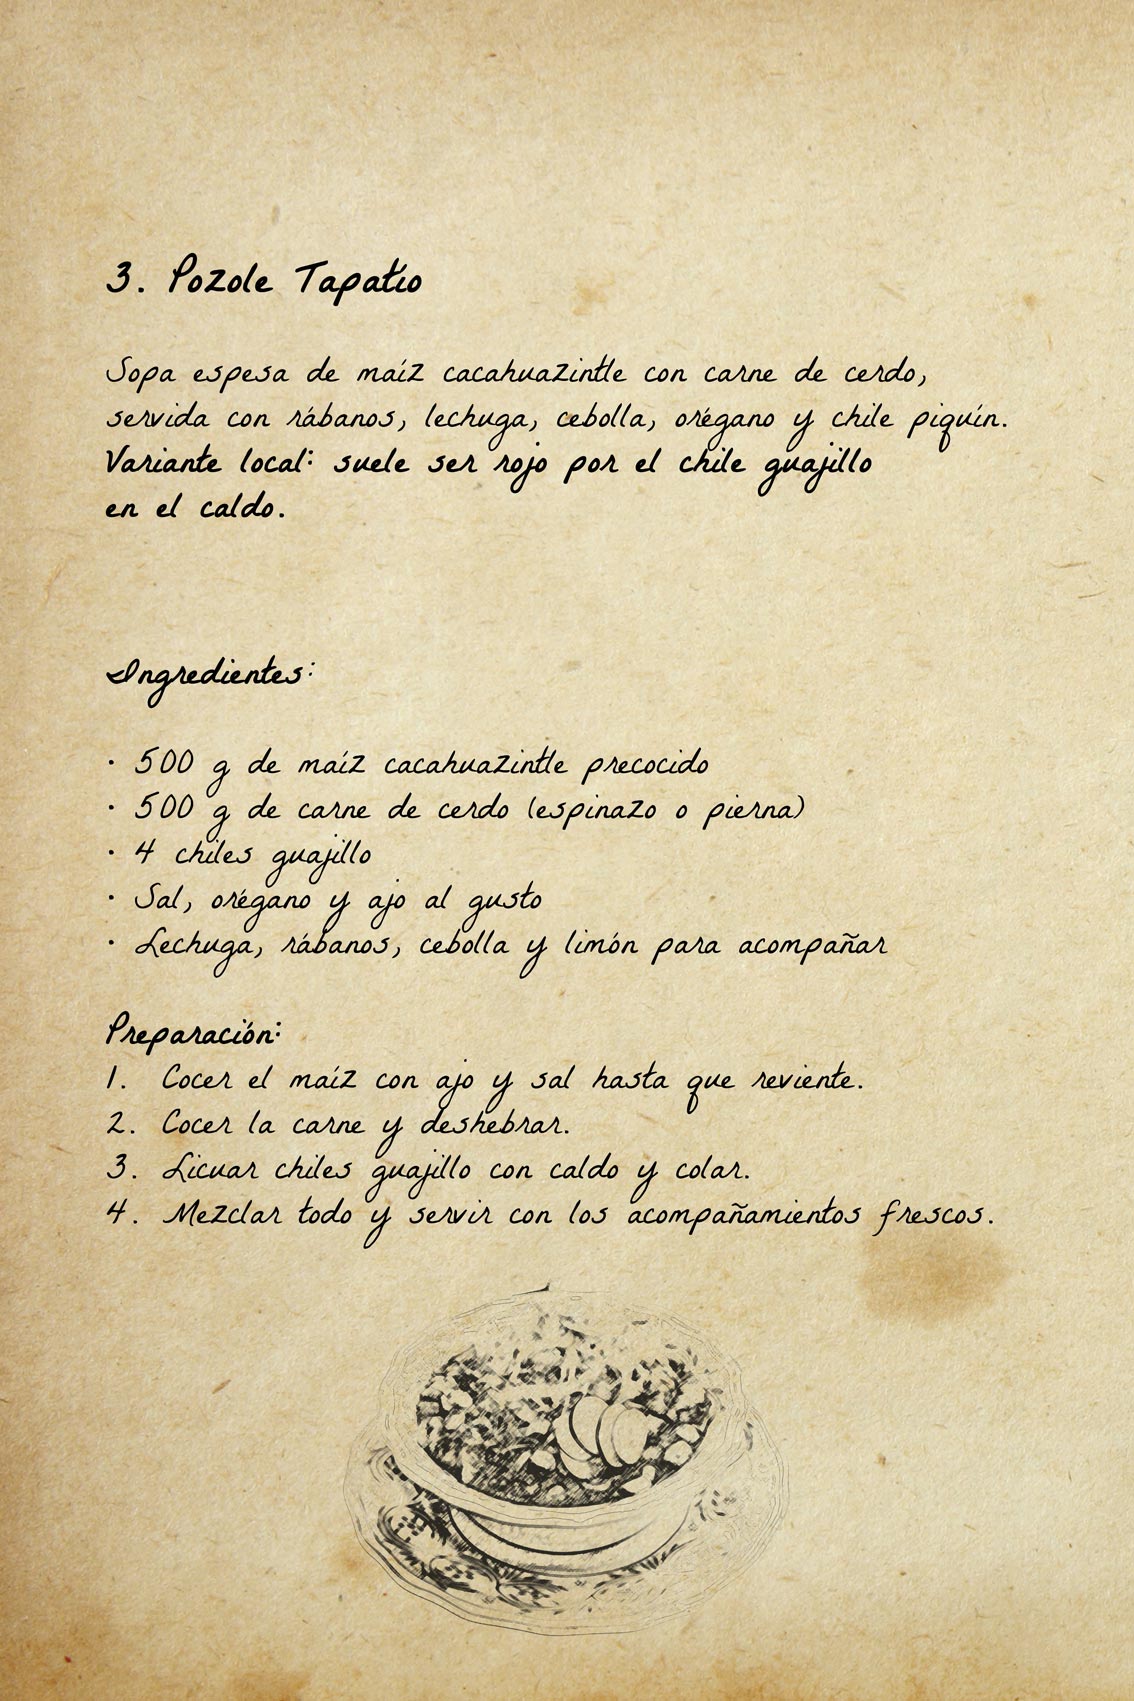 3. Pozole Tapatío
Sopa espesa de maíz cacahuazintle con carne de cerdo,
servida con rábanos, lechuga, cebolla, orégano y chile piquín.
Variante local: suele ser rojo por el chile guajillo
en el caldo.
Ingredientes:
• 500 g de maíz cacahuazintle precocido
• 500 g de carne de cerdo (espinazo o pierna)
• 4 chiles guajillo
• Sal, orégano y ajo al gusto
• Lechuga, rábanos, cebolla y limón para acompañar
Preparación:
1. Cocer el maíz con ajo y sal hasta que reviente.
2. Cocer la carne y deshebrar.
3. Licuar chiles guajillo con caldo y colar.
4. Mezclar todo y servir con los acompañamientos frescos.